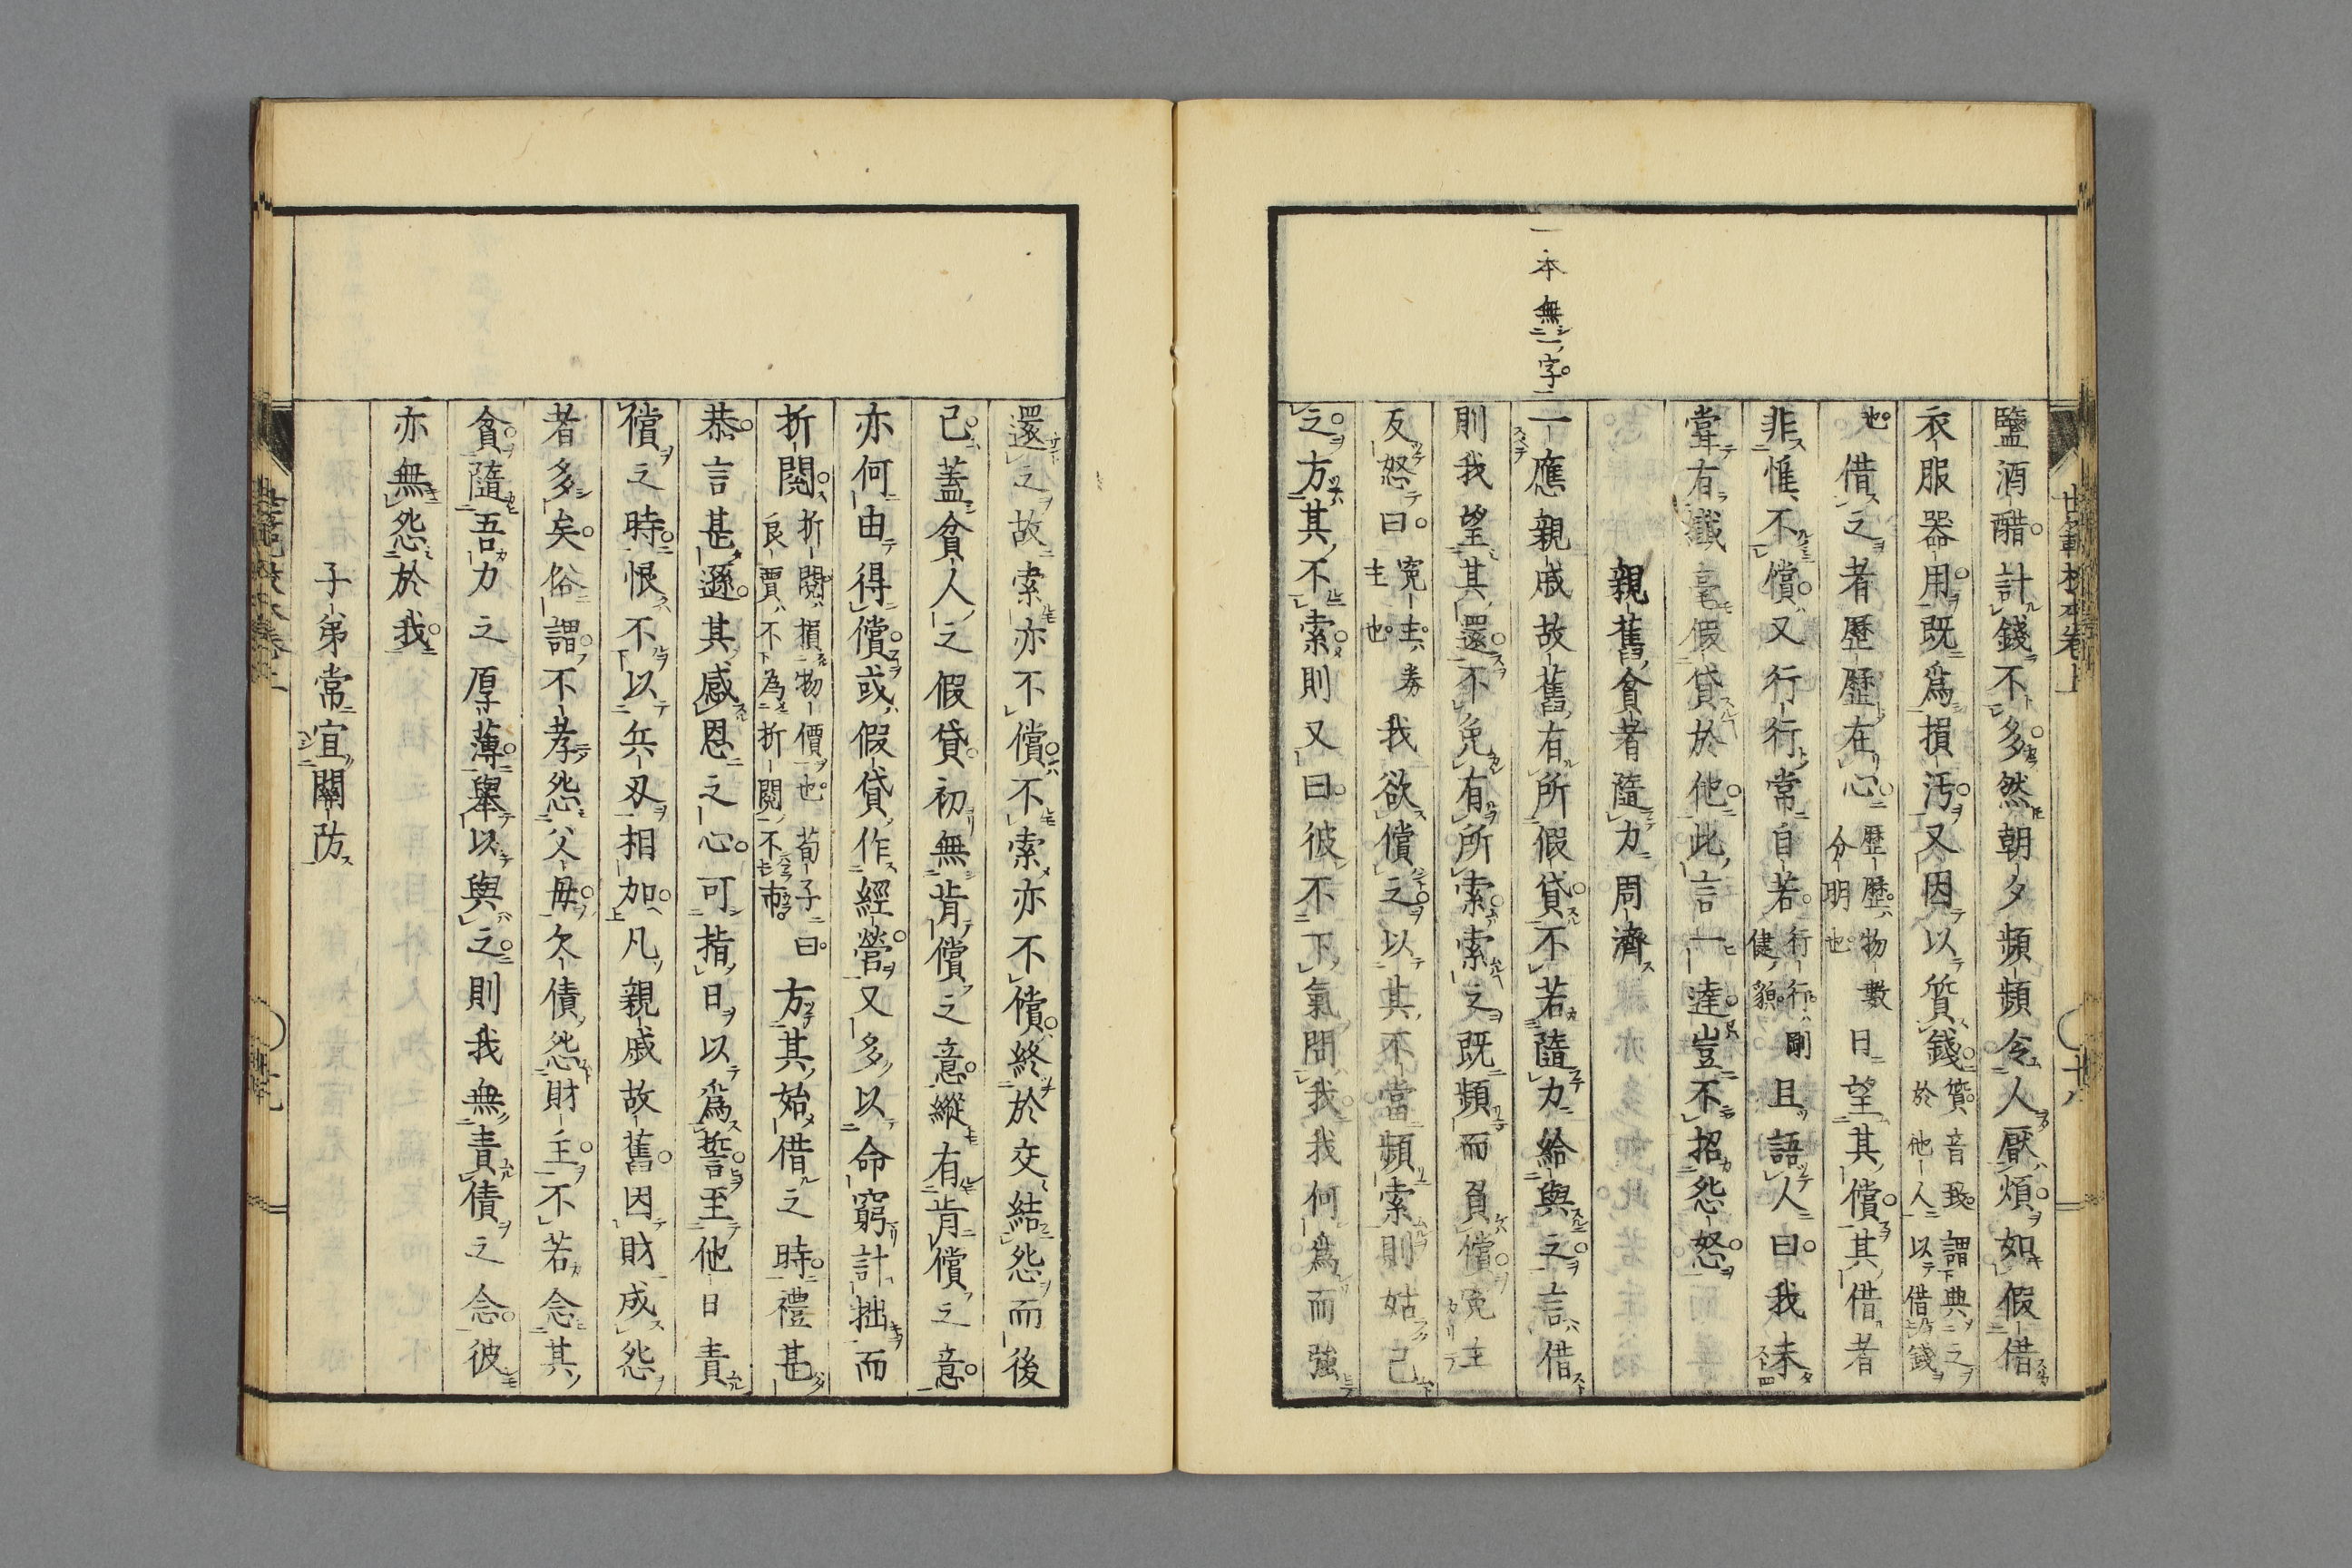 鹽酒醋計錢不多然朝夕頻頻令人厭煩如假借
衣服器用既爲損汚又因以質錢質音致謂典之於他人以借錢
也借之者歷歷在心歷歷物數分明也日望其償其借者
非惟不償又行行常自若行行剛健貌且語人曰我未
甞有纎毫假貸於他此言一達豈不招怨怒
親舊貧者隨力周濟
一本無一字
一應親戚故舊有所假貸不若隨力給與之言借
則我望其還不免有所索索之既頻而負償寃主
反怒曰寃主券主也我欲償之以其不當頻索則姑已
之方其不索則又曰彼不下氣問我我何爲而強
還之故索亦不償不索亦不償終於交結怨而後
已蓋貧人之假貸初無肯償之意縱有肯償之意
亦何由得償或假貸作經營又多以命窮計拙而
折閱折閱損物價也荀子曰良賈不為折閱不市方其始借之時禮甚
恭言甚遜其感恩之心可指日以爲誓至他日責
償之時恨不以兵刃相加凡親戚故舊因財成怨
者多矣俗謂不孝怨父母欠債怨財主不若念其
貧隨吾力之厚薄舉以與之則我無責債之念彼
亦無怨於我
子弟常宜關防